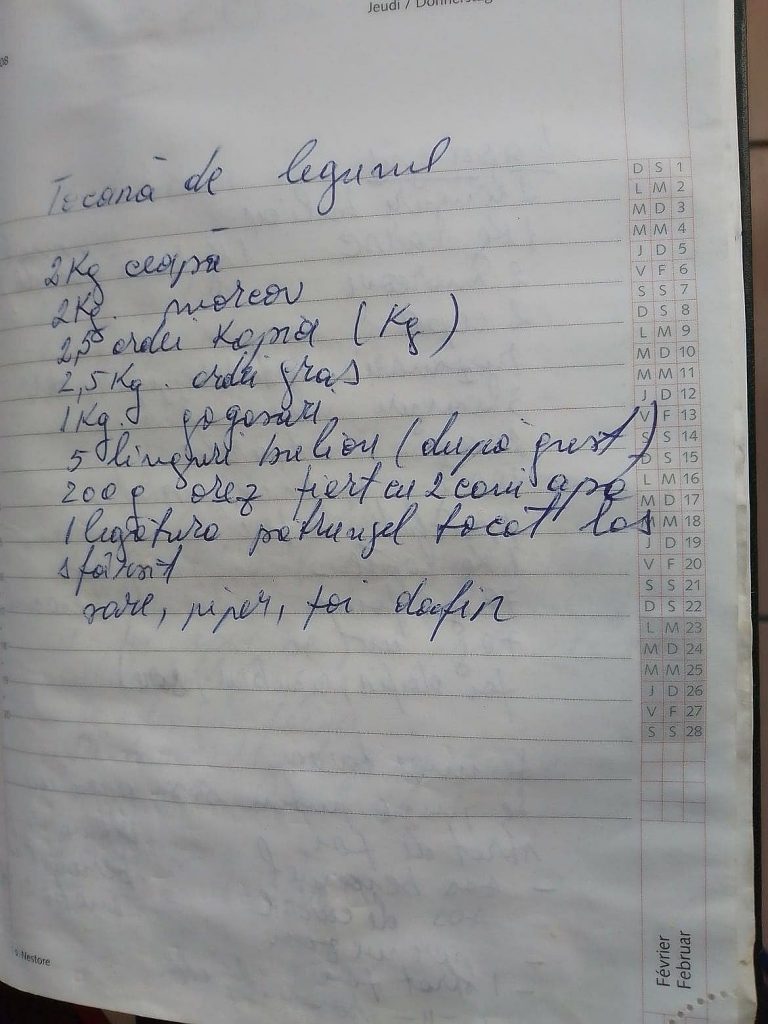 Jeudi / Donnerstag
08
Tocană de legume
2Kg ceapă
2Kg. morcov
2,5 ardei Kapia (Kg)
2,5Kg. ardei gras
1Kg. gogosari
5 linguri bulion (după gust)
200g orez fiert cu 2 cani apa
1 legătura pătrunjel tocat la
sfârsit
sare, piper, foi dafin
D S 1
L M 2
M D 3
M M 4
J D 5
V F 6
S S 7
D S 8
L M 9
M D 10
M M 11
J D 12
V F 13
S S 14
D S 15
L M 16
M D 17
M M 18
J D 19
V F 20
S S 21
D S 22
L M 23
M D 24
M M 25
J D 26
V F 27
S S 28
Février
Februar
Nestore